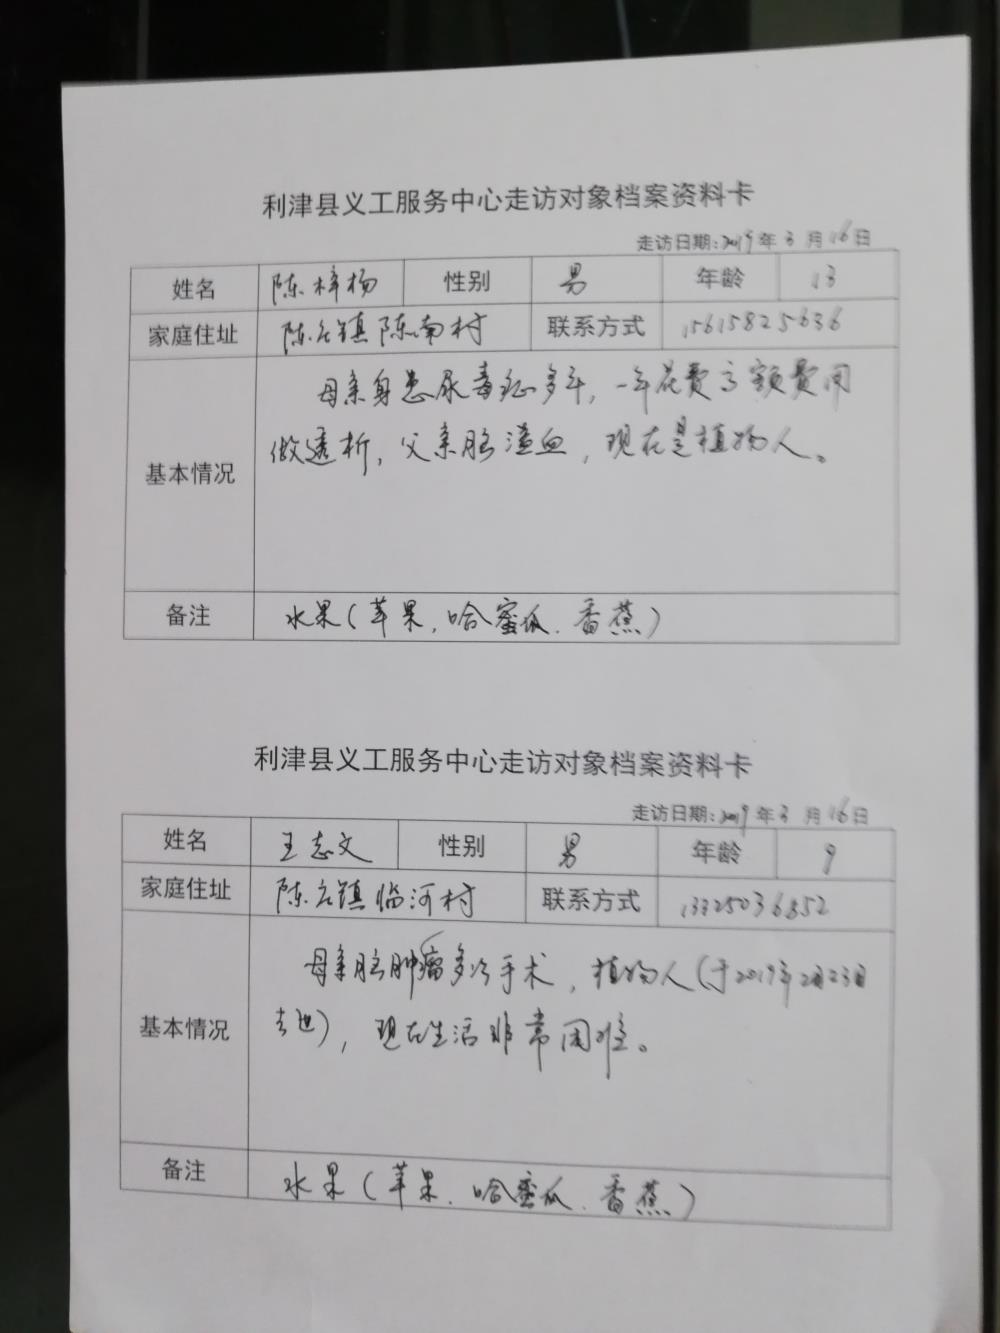 利津县义工服务中心走访对象档案资料卡
走访日期:2019年3月16日
姓名 陈梓杨 性别 男 年龄 13
家庭住址 陈庄镇陈南村 联系方式 15615825636
母亲身患尿毒症多年，一年花费高额费用
做透析，父亲脑溢血，现在是植物人。
基本情况
备注 水果(苹果.哈蜜瓜.香蕉)
利津县义工服务中心走访对象档案资料卡
走访日期:2019年3月16日
姓名 王志文 性别 男 年龄 9
家庭住址 陈庄镇临河村 联系方式 13325036852
母亲脑肿瘤多次手术，植物人(于2019年2月23日
去世)，现在生活非常困难。
基本情况
备注 水果(苹果.哈蜜瓜.香蕉)